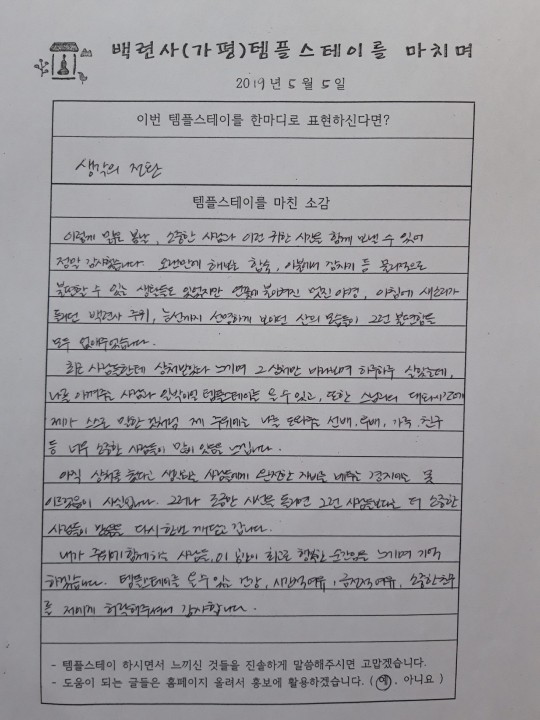 백련사(가평)템플스테이를 마치며
2019년 5월 5일
이번 템플스테이를 한마디로 표현하신다면?
생각의 전환
템플스테이를 마친 소감
이렇게 맑은 봄날, 소중한 사람과 이런 귀한 시간을 함께 보낼 수 있어
정말 감사했습니다. 오랜만에 해보는 합숙, 이불에서 잠자기 등 물리적으로
불편할 수 있는 생활들도 있었지만 연꽃에 불이켜진 멋진 야경, 아침에 새소리가
들리던 백련사 주위, 능선까지 선명하게 보이던 산의 모습들이 그런 불편함들
모두 없애주었습니다.
최근 사람들한테 상처받았다 느끼며 그 상처만 바라보며 하루하루 살았는데,
나를 아껴주는 사람과 일박이일 템플스테이를 올 수 있고, 또한 스님과의 대화시간에
제가 스스로 말한 것처럼 제 주위에는 나를 도와주는 선배, 후배, 가족, 친구
등 너무 소중한 사람들이 많이 있음을 느낍니다.
아직 상처를 줬다고 생각되는 사람들에게 완전한 자비를 베푸는 경지에는 못
이르렀음이 사실입니다. 그러나 조금만 시선을 돌리면 그런 사람들보다는 더 소중한
사람들이 많음을 다시한번 깨닫고 갑니다.
내가 주위에 함께하는 사람들, 이 순간이 최고로 행복한 순간임을 느끼며 기억
하겠습니다. 템플스테이를 올 수 있는 건강, 시간적여유, 금전적여유, 소중한친구
를 저에게 허락해주셔서 감사합니다.
- 템플스테이 하시면서 느끼신 것들을 진솔하게 말씀해주시면 고맙겠습니다.
- 도움이 되는 글들은 홈페이지 올려서 홍보에 활용하겠습니다. ( 예 , 아니요 )